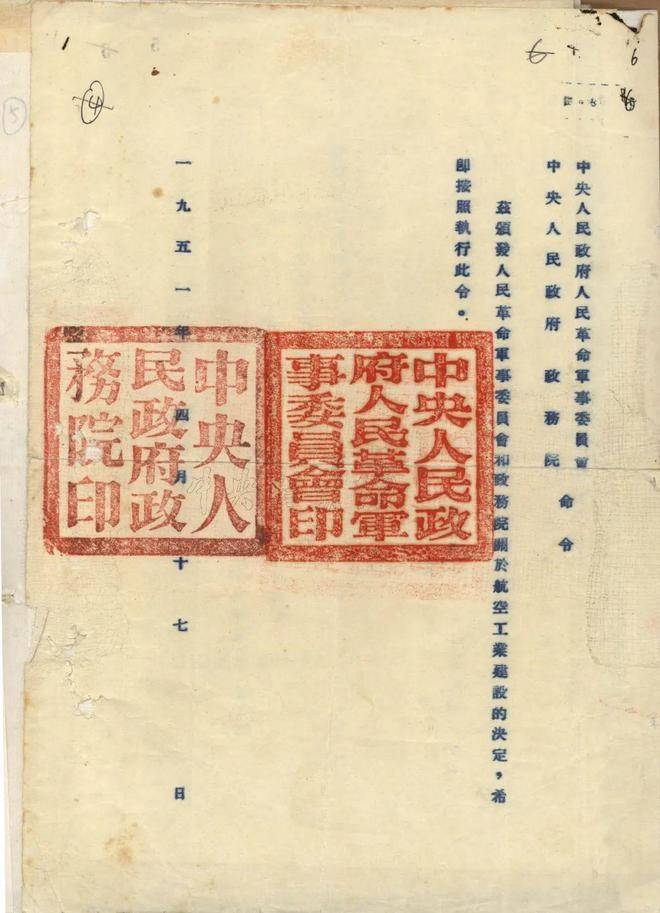 中央人民政府人民革命軍事委員會
中央人民政府 政務院 命令
茲頒發人民革命軍事委員會和政務院關於航空工業建設的決定，希
即按照執行此令。
一九五一年四月十七日
中央人民政
府人民革命軍
事委員會印
中央人
民政府政
務院印
1
④
6
6
⑤